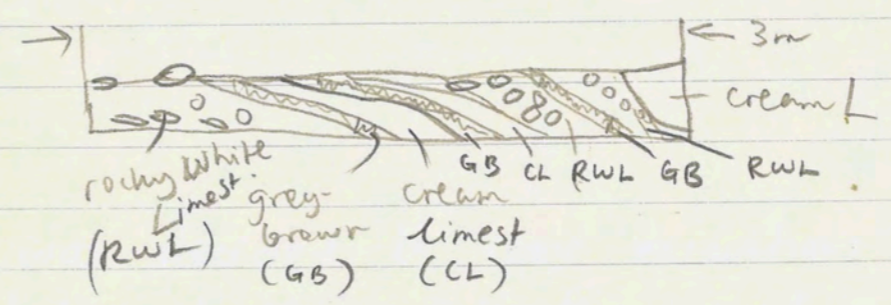 3m
cream L
GB CL RWL GB RWL
rocky white
Limest.
(RWL)
grey-
brown
(GB)
cream
limest
(CL)